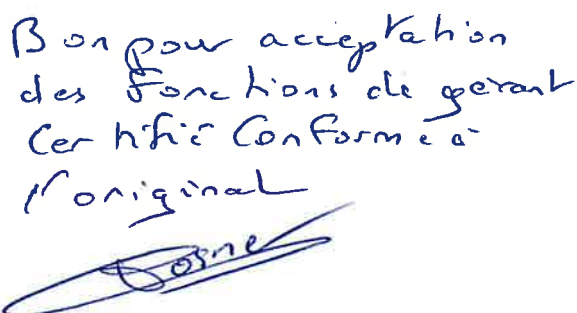 Bon pour acceptation
des fonctions de gérant
Certifié Conforme à
l'original